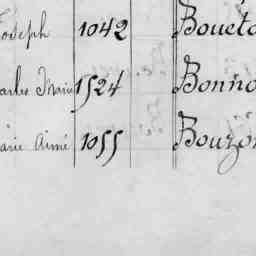 Joseph 1042 Boueto
Charles Marie 1524 Bonno
Marie Aimé 1055 Bouzon